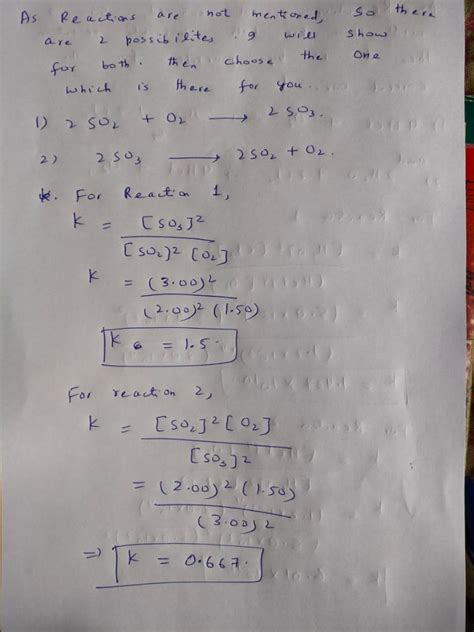 As Reactions are not mentioned, so there
are 2 possibilites. I will show
for both. then choose the one
which is there for you.
1) 2 SO2 + O2 ⟶ 2 SO3.
2) 2 SO3 ⟶ 2 SO2 + O2.
For Reaction 1,
K = [SO3]2
[SO2]2 [O2]
K = (3.00)2
(2.00)2 (1.50)
K = 1.5.
For reaction 2,
K = [SO2]2 [O2]
[SO3]2
= (2.00)2 (1.50)
(3.00)2
⇒ K = 0.667.